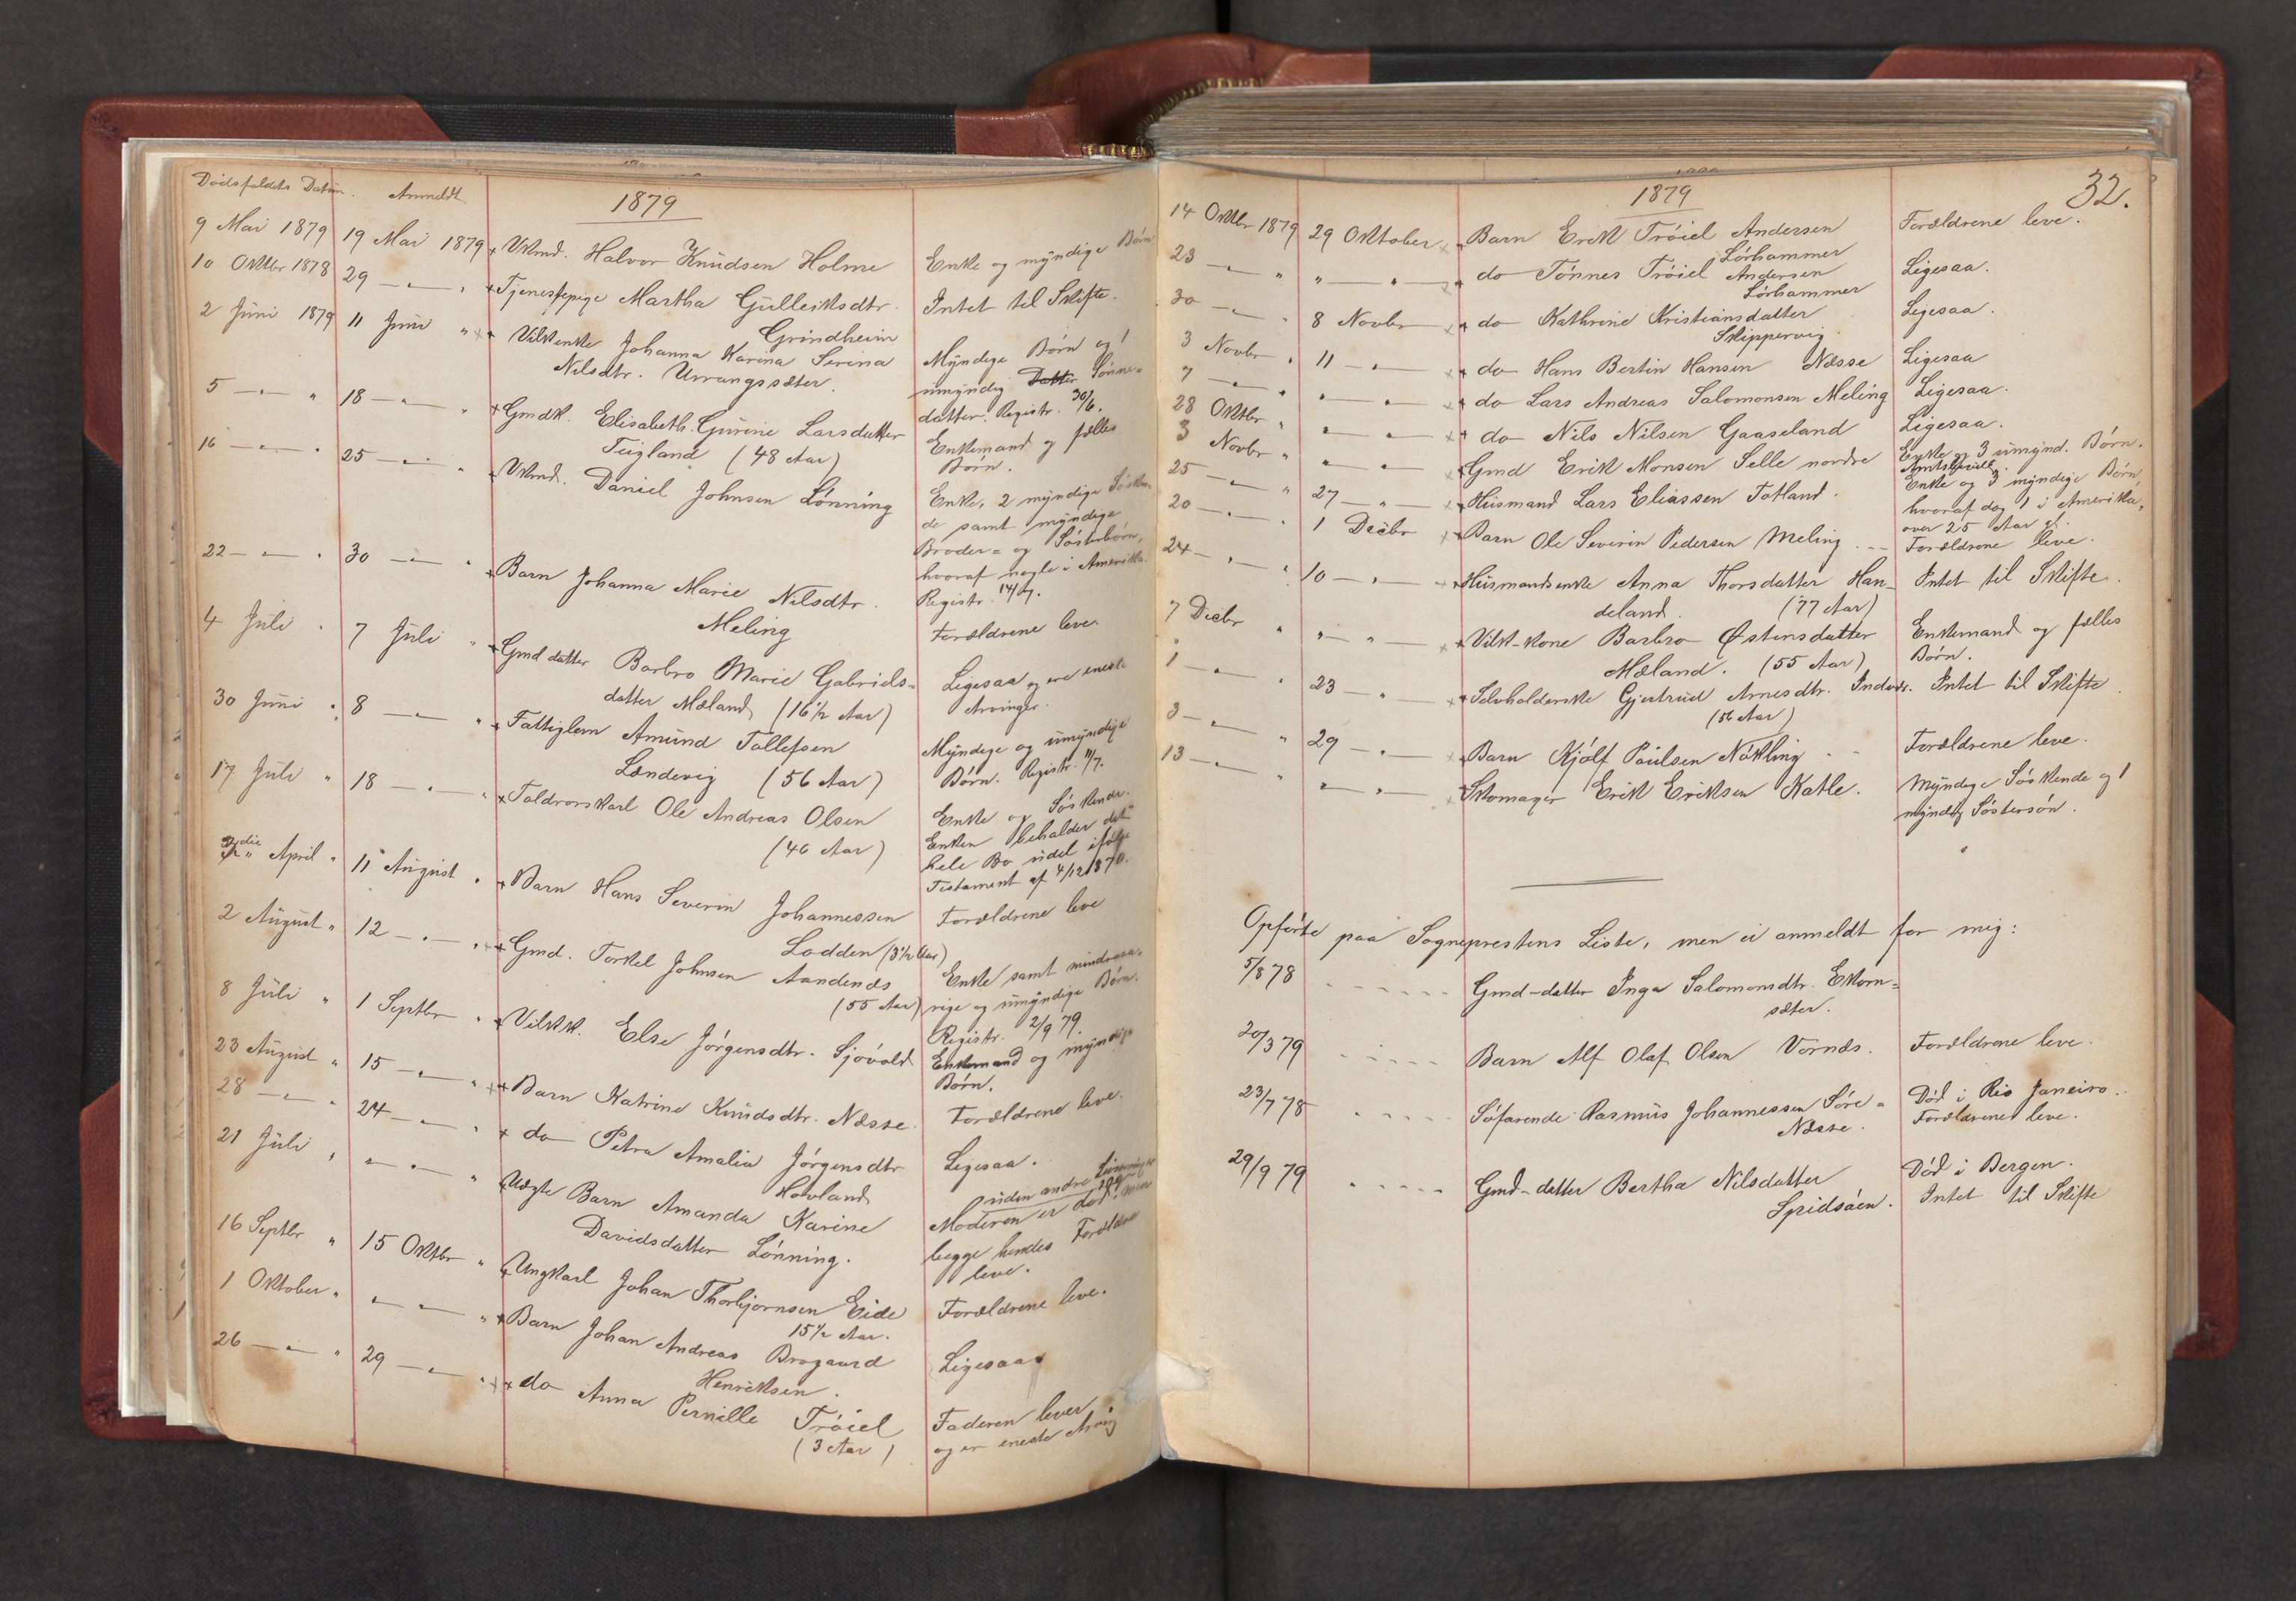 Dødsfaldets Datum. Anmeldt.
1879
9 Mai 1879 19 Mai 1879 Vilkmd. Halvor Knudsen Holme Enke og myndige Børn
10 Oktbr 1878 29 — " — " Tjenestepige Martha Gulleiksdtr. Intet til Skifte.
Grindheim
2 Juni 1879 11 Juni " Vilkenke Johanna Karina Serina Myndige Børn og 1
Nilsdtr. Urrangssæter. umyndig Datter Sønne=
datter. Registr. 30/6.
5 — " — " 18 — " — " Gmdk. Elisabeth Gurine Larsdatter Enkemand og fælles
Tugland (48 Aar) Børn.
16 — " — " 25 — " — " Vilkmd. Daniel Johnsen Lønning Enke, 2 myndige Søsken=
de samt myndige
Broder= og Søsterbørn,
hvoraf nogle i Amerika.
Registr. 14/7.
22 — " — " 30 — " — " Barn Johanna Marie Nilsdtr. Forældrene leve.
Meling
4 Juli " 7 Juli " Gmd datter Barbro Marie Gabriels= Ligesaa og ere eneste
datter Mæland (16½ Aar) Arvinger.
30 Juni " 8 — " — " Fattiglem Amund Tollefsen Myndige og umyndige
Landevig (56 Aar) Børn. Registr. 11/7.
17 Juli " 18 — " — " Toldrorskarl Ole Andreas Olsen Enke og Søskende.
(46 Aar) Enken beholder det
hele Bo udel ifølge
Testament af 4/12 1870.
April " 11 August " Barn Hans Severin Johannessen Forældrene leve
Lodden (3½ Aar)
2 August " 12 — " — " Gmd. Torkel Johnsen Aandenæs Enke samt mindreaa=
(55 Aar) rige og umyndige Børn.
Registr. 2/9 79.
8 Juli " 1 Septbr " Vilkk. Else Jørgensdtr. Sjovold Enkemand og myndige
Børn.
23 August " 15 — " — " Barn Katrine Knudsdtr. Næsse. Forældrene leve.
28 — " — " 24 — " — " do Petra Amalia Jørgensdtr Ligesaa.
Hovland
21 Juli " " — " — " Uægte Barn Amanda Karine uden andre
Davidsdatter Lønning. Moderen er død, men
begge hendes Forældre
leve.
16 Septbr " 15 Oktbr " Ungkarl Johan Thorbjornsen Eide Forældrene leve.
15½ Aar.
1 Oktober " " — " — " Barn Johan Andreas Brogaard Ligesaa
Henriksen.
26 — " — " 29 — " — " do Anna Pernille Trøiel Faderen lever
(3 Aar) og er eneste Arving
32.
1879
14 Oktbr 1879 29 Oktober Barn Erik Trøiel Andersen Forældrene leve.
Lørhammer
23 — " — " " — " — do Tønnes Trøiel Andersen Ligesaa.
Lørhammer
30 — " — " 8 Novbr do Kathrine Kristiansdatter Ligesaa.
Skippervig
3 Novbr " 11 — " — do Hans Bertin Hansen Næsse Ligesaa
7 — " — " " — " — do Lars Andreas Salomonsen Meling Ligesaa.
28 Oktbr " " — " — do Nils Nilsen Gaaseland Ligesaa.
3 Novbr " " — " — Gmd Erik Monsen Selle nordre Enke og 3 umynd. Børn.
25 — " — " 27 — " — Husmand Lars Eliassen Totland. Enke og 3 myndige Børn,
hvoraf dog 1 i Amerika,
over 25 Aar gl.
20 — " — " 1 Decbr Barn Ole Severin Pedersen Meling Forældrene leve.
24 — " — " 10 — " — Husmandsenke Anna Thorsdatter Han= Intet til Skifte.
deland. (77 Aar)
7 Decbr " " — " — Vilk-kone Barbro Østensdatter Enkemand og fælles
Mæland. (55 Aar) Børn.
1 — " — " 23 — " — Selvholderske Gjertrud Arnesdtr. Indvær. Intet til Skifte.
(56 Aar)
3 — " — " 29 — " — Barn Kjølf Poulsen Nøkling Forældrene leve.
13 — " — " " — " — Skomager Erik Eriksen Katle. Myndige Søskende og 1
myndig Søstersøn.
Opførte paa Sogneprestens Liste, men ei anmeldt for mig:
5/8 78 Gmd-datter Inga Salomonsdtr. Ekorn=
sæter.
20/3 79 Barn Alf Olaf Olsen Vornæs. Forældrene leve.
23/7 78 Søfarende Rasmus Johannessen Søre= Død i Rio Janeiro.
Næsse. Forældrene leve.
29/9 79 Gmd-datter Bertha Nilsdatter Død i Bergen.
Spidsøen. Intet til Skifte